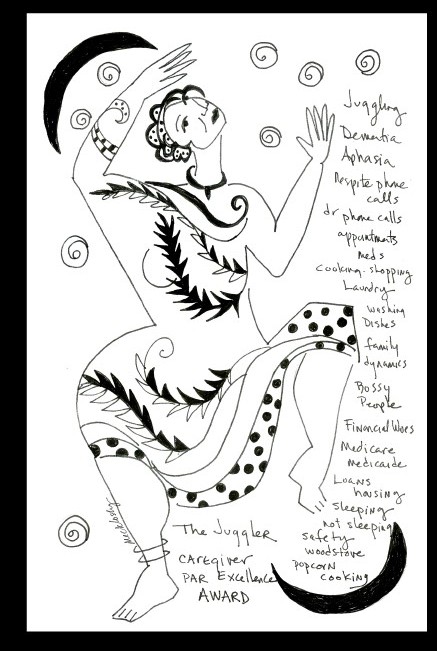 Juggling
Dementia
Aphasia
Respite phone
calls
dr phone calls
appointments
meds
cooking-shopping
Laundry
washing
Dishes
family
dynamics
Bossy
People
Financial Woes
Medicare
medicaide
Loans
housing
sleeping
not sleeping
safety
woodstove
popcorn
cooking
The Juggler
Caregiver
PAR Excellence
AWARD